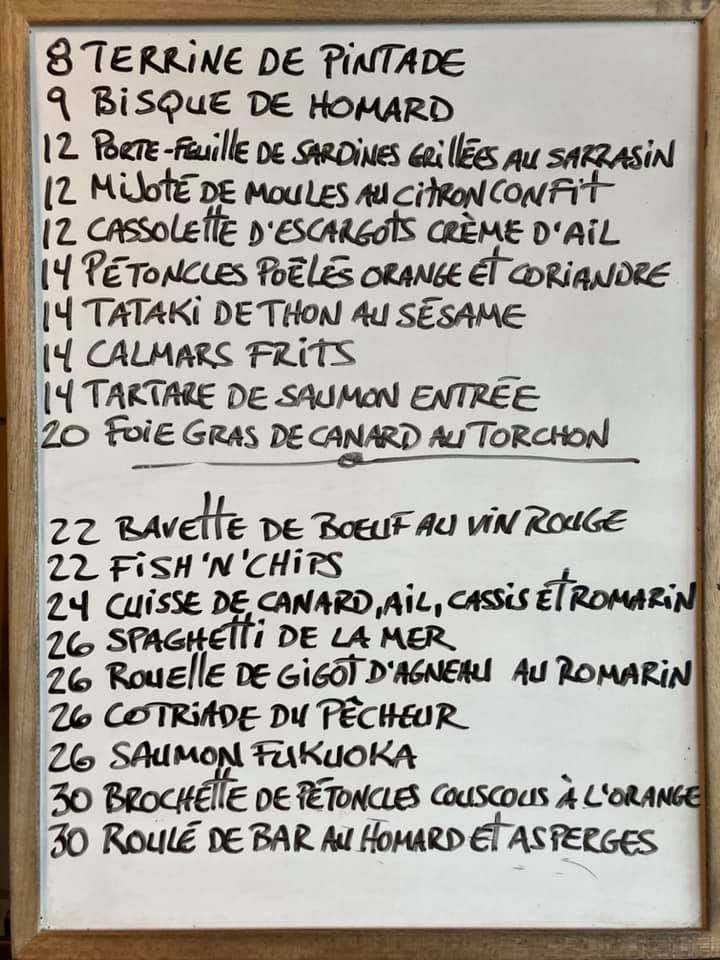 8 TERRINE DE PINTADE
9 BISQUE DE HOMARD
12 PORTE-FEUILLE DE SARDINES GRILLÉES AU SARRASIN
12 MIJOTÉ DE MOULES AU CITRON CONFIT
12 CASSOLETTE D'ESCARGOTS CRÈME D'AIL
14 PÉTONCLES POÊLÉS ORANGE ET CORIANDRE
14 TATAKI DE THON AU SÉSAME
14 CALMARS FRITS
14 TARTARE DE SAUMON ENTRÉE
20 FOIE GRAS DE CANARD AU TORCHON
22 BAVETTE DE BOEUF AU VIN ROUGE
22 FISH'N'CHIPS
24 CUISSE DE CANARD, AIL, CASSIS ET ROMARIN
26 SPAGHETTI DE LA MER
26 ROUELLE DE GIGOT D'AGNEAU AU ROMARIN
26 COTRIADE DU PÊCHEUR
26 SAUMON FUKUOKA
30 BROCHETTE DE PÉTONCLES COUSCOUS À L'ORANGE
30 ROULÉ DE BAR AU HOMARD ET ASPERGES